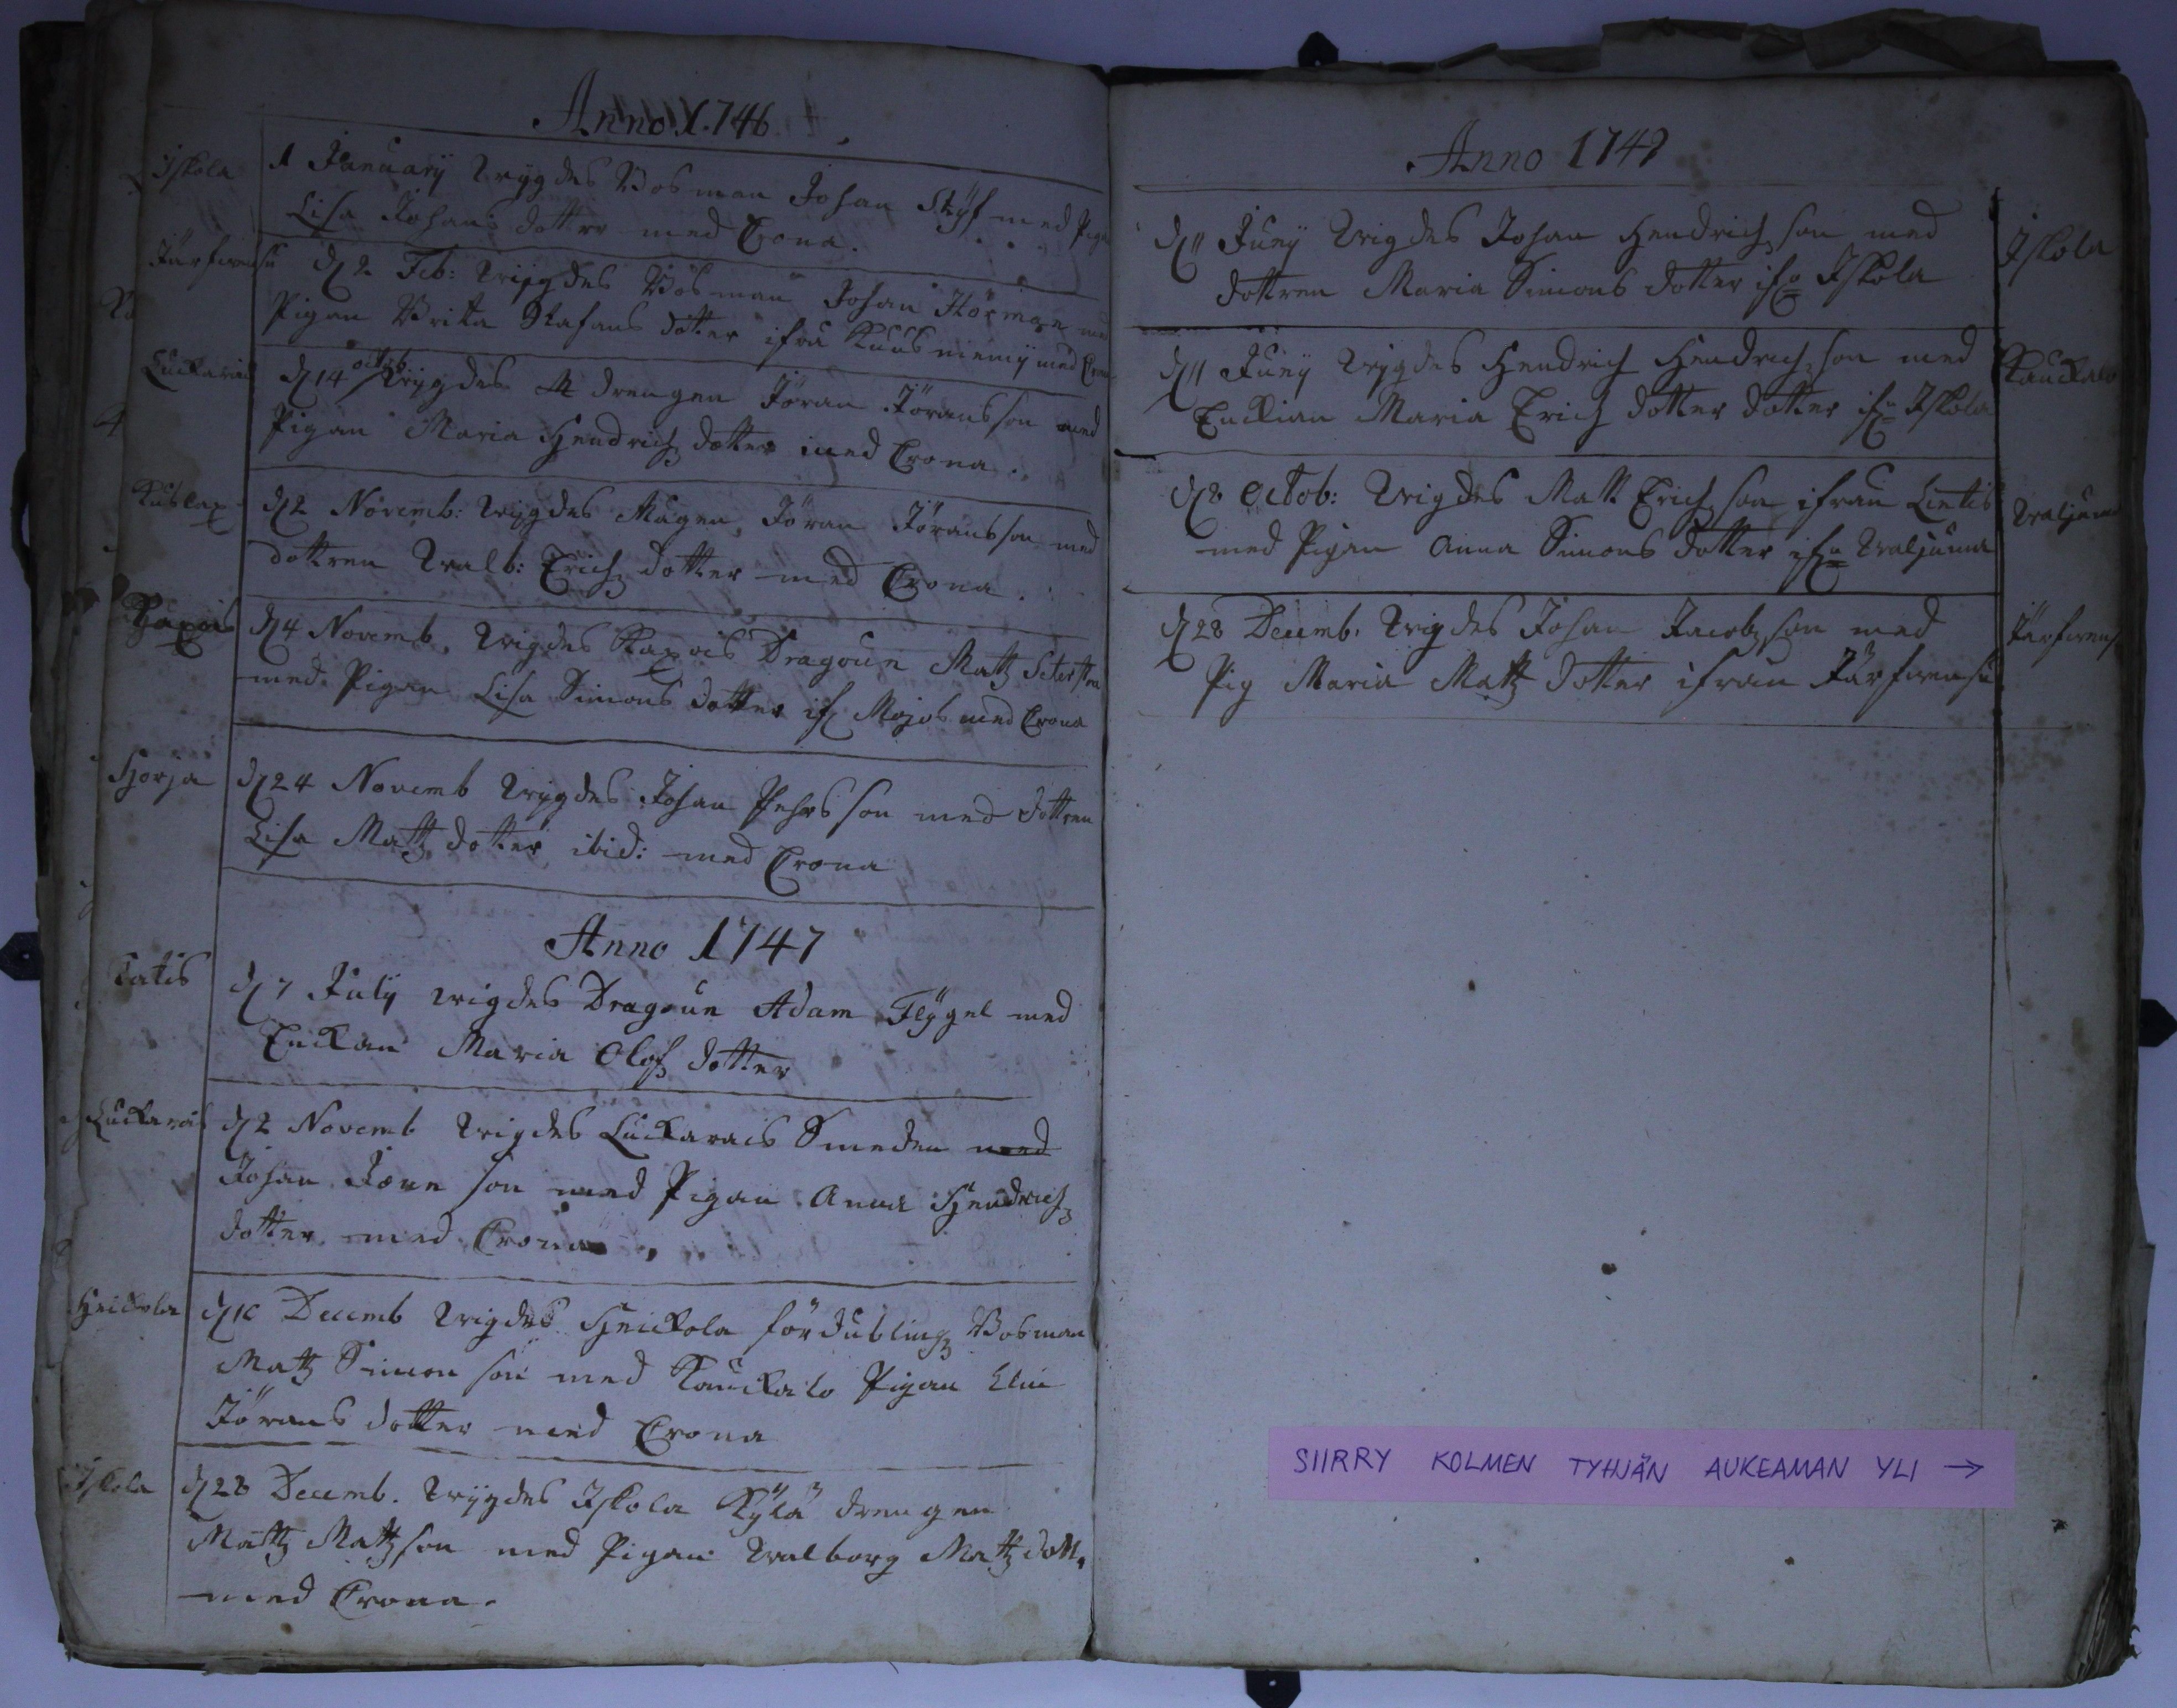 Anno 1746
Iskola
1 January wygdes Bosman Johan Styf med Pigan
Lisa Johans dotter med Crona.
Järfwensu
d 2 Feb: wijgdes Bosman Johan Störman med
Pigan Brita Stafans dotter ifrå Kuusniemij med Crona
Luckarais
d 14 octob wygdes drengen Jöran Jöransson med
Pigan Maria Hendrichz dotter med Crona.
Kuslax
d 2 Novemb: wijgdes Mågen Jöran Jöransson med
dottren Walb: Erichz dotter med Crona.
d 4 Novemb. wigdes Dragoun Matz
med Pigan Lisa Simons dotter if med Crona
Horja
d 24 Novemb wijgdes Johan Pehrsson med dottren
Lisa Matz dotter ibid: med Crona
Anno 1747
Tatis
d 7 July wigdes Dragoun Adam Flygel med
Enckan Maria Olofz dotter
Luckarais
d 2 Novemb wigdes Luckarais Smeden med
Johan son med Pigan Anna Hendrichz
dotter med Crona.
Heickola
d 10 Decemb wigdes Heickola fördublingz Bosman
Matz Simon son med Kauckalo Pigan Elin
Jörans dotter med Crona
Iskola
d 28 Decemb. wijgdes Iskola Kylä drengen
Mattz Matzson med Pigan Walborg Matz dott.
med Crona.
Anno 1747
d 11 Juny wigdes Johan Hendrichson med
dottren Maria Simons dotter ifr Iskola
Iskola
d 11 Juny wijgdes Hendrich Hendrichson med
Enckian Maria Erich dotter dotter ifr Iskola
Kauckalo
d 8 octob: wigdes Matt Erichson ifrån Lietis
med Pigan Anna Simons dotter ifr Waljuma
Waljuma
d 28 Decemb. wigdes Johan Jacobzson med
Pig Maria Matz dotter ifrån Järfwensu
Järfwens
SIIRRY KOLMEN TYHJÄN AUKEAMAN YLI →